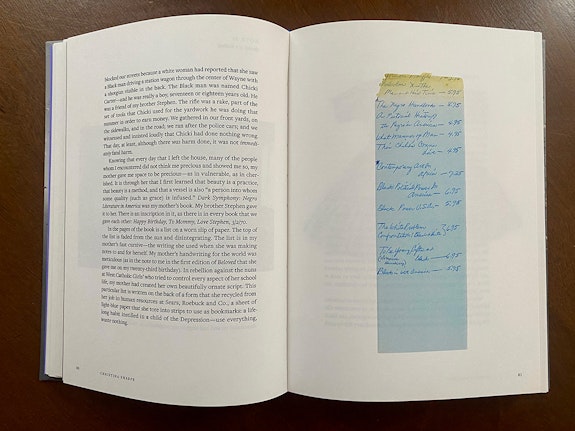 blocked our streets because a white woman had reported that she saw
a Black man driving a station wagon through the center of Wayne with
a shotgun visible in the back. The Black man was named Chicki
Carter—and he was really a boy, seventeen or eighteen years old. He
was a friend of my brother Stephen. The rifle was a rake, part of the
set of tools that Chicki used for the yardwork he was doing that
summer in order to earn money. We gathered in our front yards, on
the sidewalks, and in the road; we ran after the police cars; and we
witnessed and insisted loudly that Chicki had done nothing wrong.
That day, at least, although there was harm done, it was not immedi-
ately fatal harm.
Knowing that every day that I left the house, many of the people
whom I encountered did not think me precious and showed me so, my
mother gave me space to be precious—as in vulnerable, as in cher-
ished. It is through her that I first learned that beauty is a practice,
that beauty is a method, and that a vessel is also "a person into whom
some quality (such as grace) is infused." Dark Symphony: Negro
Literature in America was my mother's book. My brother Stephen gave
it to her. There is an inscription in it, as there is in every book that we
gave each other: Happy Birthday, To Mommy, Love Stephen,
In the pages of the book is a list on a worn slip of paper. The top of
the list is faded from the sun and disintegrating. The list is in my
mother's fast cursive—the writing she used when she was making
notes to and for herself. My mother's handwriting for the world was
meticulous (as in the note to me in the first edition of Beloved that she
gave me on my twenty-third birthday). In rebellion against the nuns
at West Catholic Girls' who tried to control every aspect of her school
life, my mother had created her own beautifully ornate script. This
particular list is written on the back of a form that she recycled from
her job in human resources at Sears, Roebuck and Co., a sheet of
light-blue paper that she tore into strips to use as bookmarks: a life-
long habit instilled in a child of the Depression—use everything,
waste nothing.
80
CHRISTINA SHARPE
— 5.95
The Negro Handbook —
A Pictorial History
The Negro in America — 4.95
What Manner of Man — 4.95
This Child's
— 4.95
Contemporary
— 7.25
Black Political Power In
America — 6.95
Black Power — 5.95
The White Problem
7.95
To be Young Gifted &
Black — 6.95
5.95
81